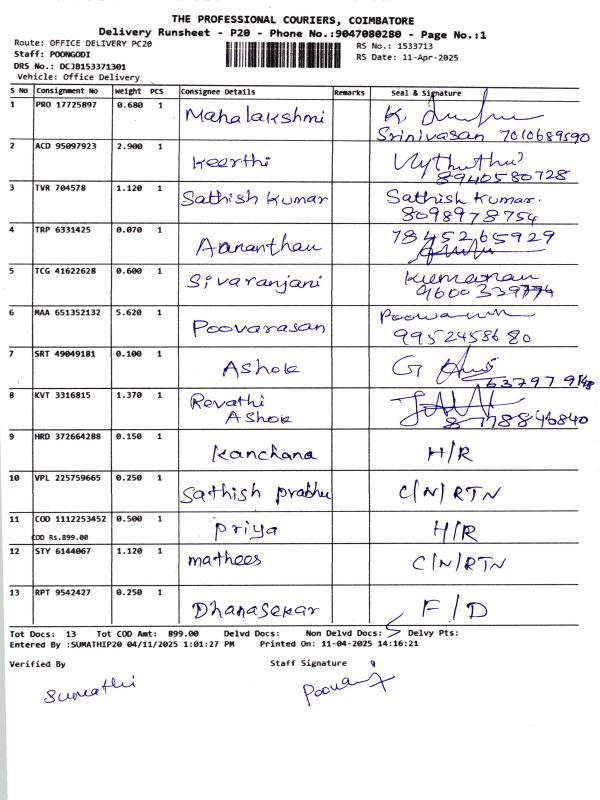 THE PROFESSIONAL COURIERS, COIMBATORE
Delivery Runsheet - P20 - Phone No.:9047080280 - Page No.:1
Route: OFFICE DELIVERY PC20
RS No.: 1533713
Staff: POONGODI
RS Date: 11-Apr-2025
DRS No.: DCJB153371301
Vehicle: Office Delivery
S No Consignment No Weight PCS Consignee Details Remarks Seal & Signature
1 PRO 17725897 0.680 1 Mahalakshmi
Srinivasan 7010689590
2 ACD 95097923 2.900 1 Keerthi
8940580728
3 TVR 704578 1.120 1 Sathish Kumar Sathish Kumar.
8098978754
4 TRP 6331425 0.070 1 Aananthan 7845265929
5 TCG 41622628 0.600 1 Sivaranjani Kumaran
6 MAA 651352132 5.620 1 Poovarasan
9952458680
7 SRT 49049181 0.100 1 Ashok G
8 KVT 3316815 1.370 1 Revathi
Ashok
9 HRD 372664288 0.150 1 Kanchana H/R
10 VPL 225759665 0.250 1 Sathish prabhu C/N/RTN
11 COD 1112253452 0.500 1 Priya H/R
COD Rs.899.00
12 STY 6144067 1.120 1 mathees C/N/RTN
13 RPT 9542427 0.250 1 Dhanasekar F/D
Tot Docs: 13 Tot COD Amt: 899.00 Delvd Docs: Non Delvd Docs: 5 Delvy Pts:
Entered By :SUMATHIP20 04/11/2025 1:01:27 PM Printed On: 11-04-2025 14:16:21
Verified By Staff Signature
Sumathi